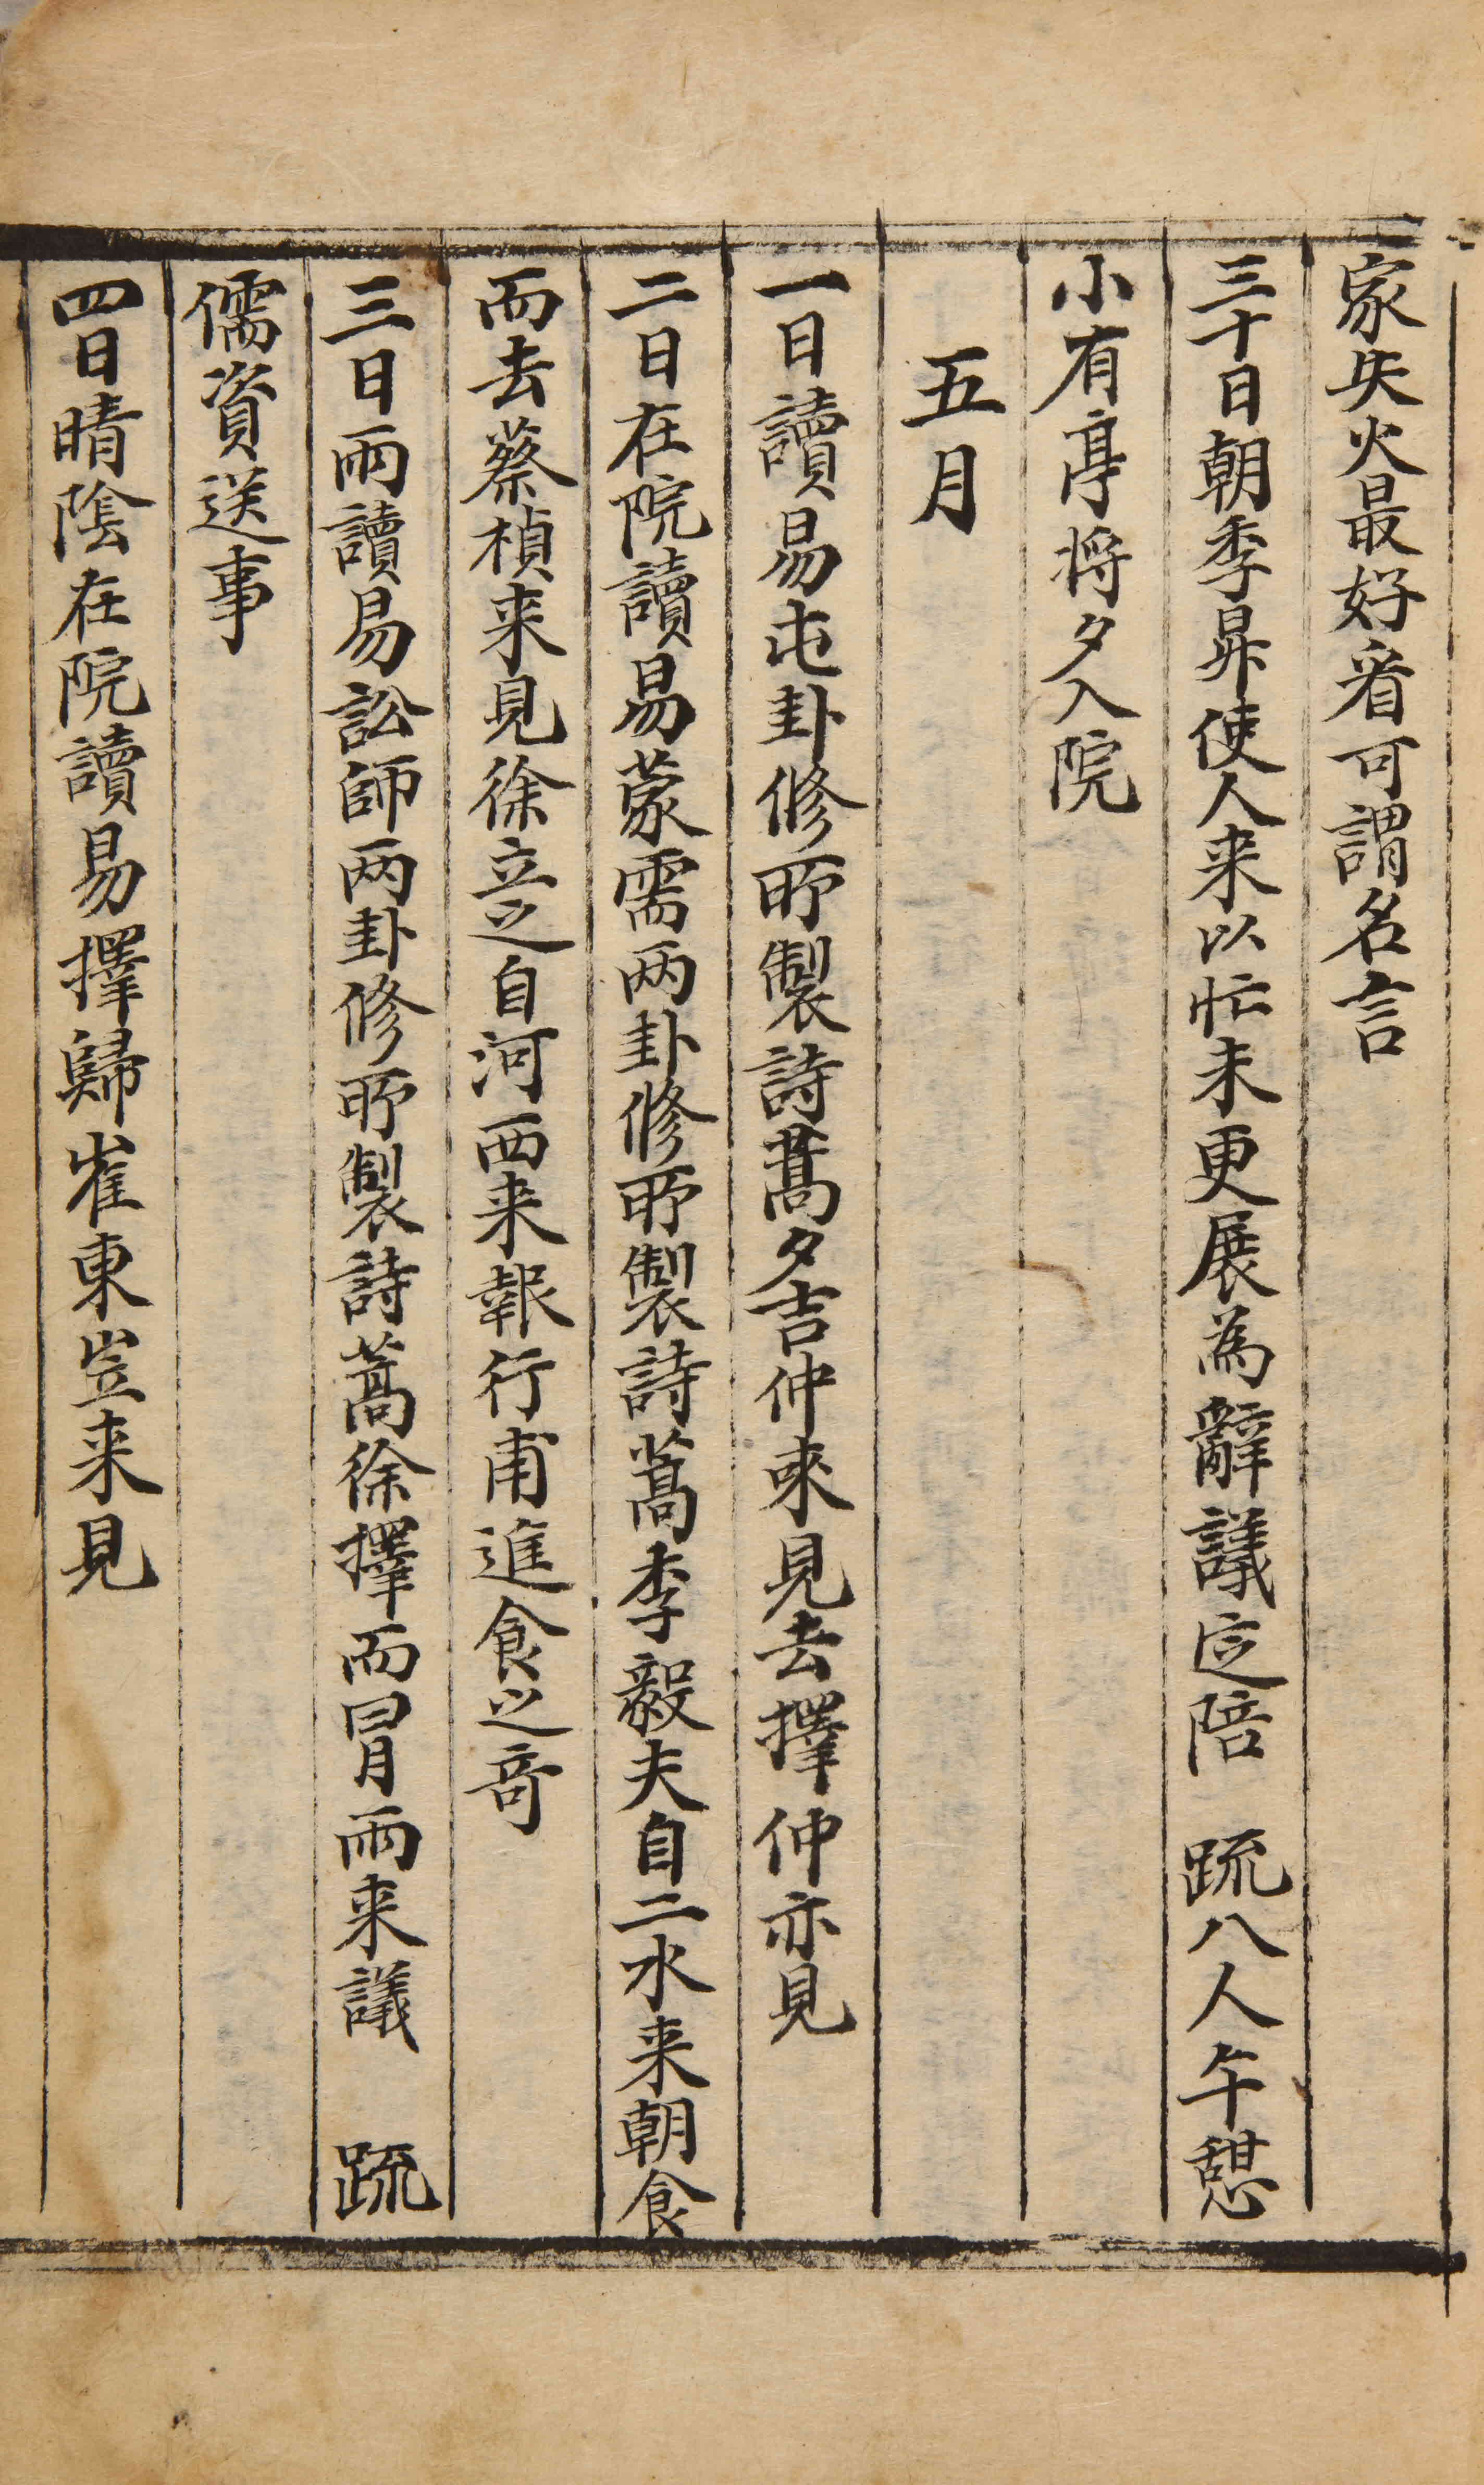 家失火最好看可謂名言
三十日朝季昇使人来以忙未更展為辭議定陪 䟽八人午憇
小有亭将夕入院
五月
一日讀易屯卦修所製詩藁夕吉仲來見去擇仲亦見
二日在院讀易蒙需两卦修所製詩藁李毅夫自二水来朝食
而去蔡楨来見徐立之自河西来報行甫進食之奇
三日雨讀易訟師两卦修所製詩藁徐擇而冒雨来議 䟽
儒資送事
四日晴陰在院讀易擇歸崔東岦来見